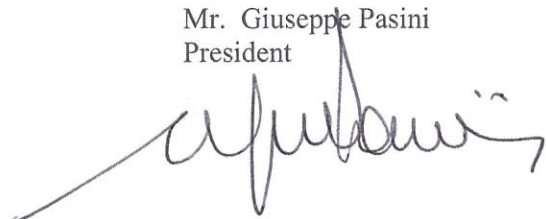 Mr. Giuseppe Pasini
President